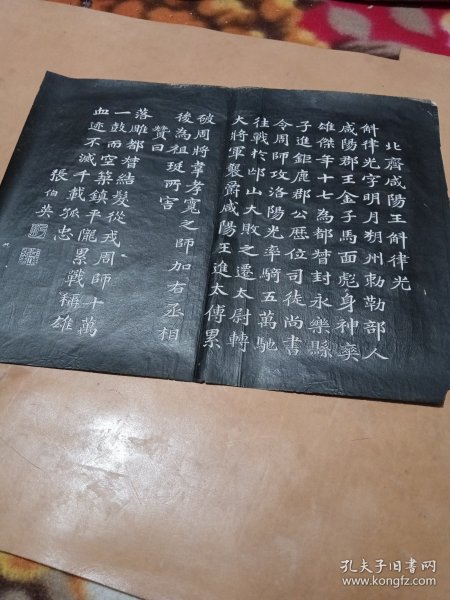 北齊咸陽王斛律光
斛律光字明月朔州勅勒部人
咸陽郡王金子馬面彪身神爽
雄傑年十七為都督封永樂縣
子進鉅鹿郡公歷位司徒尚書
令周師攻洛陽光率騎五萬馳
往戰於邙山大敗之還太尉轉
大將軍襲爵咸陽王進太傅累
破周將韋孝寬之師加右丞相
後為祖珽所害
贊曰
落雕都督結髮從戎周師十萬
一鼓而空築鎮平隴累戰稱雄
血迹不滅千載孤忠
張伯英
孔夫子旧书网
www.kongfz.com